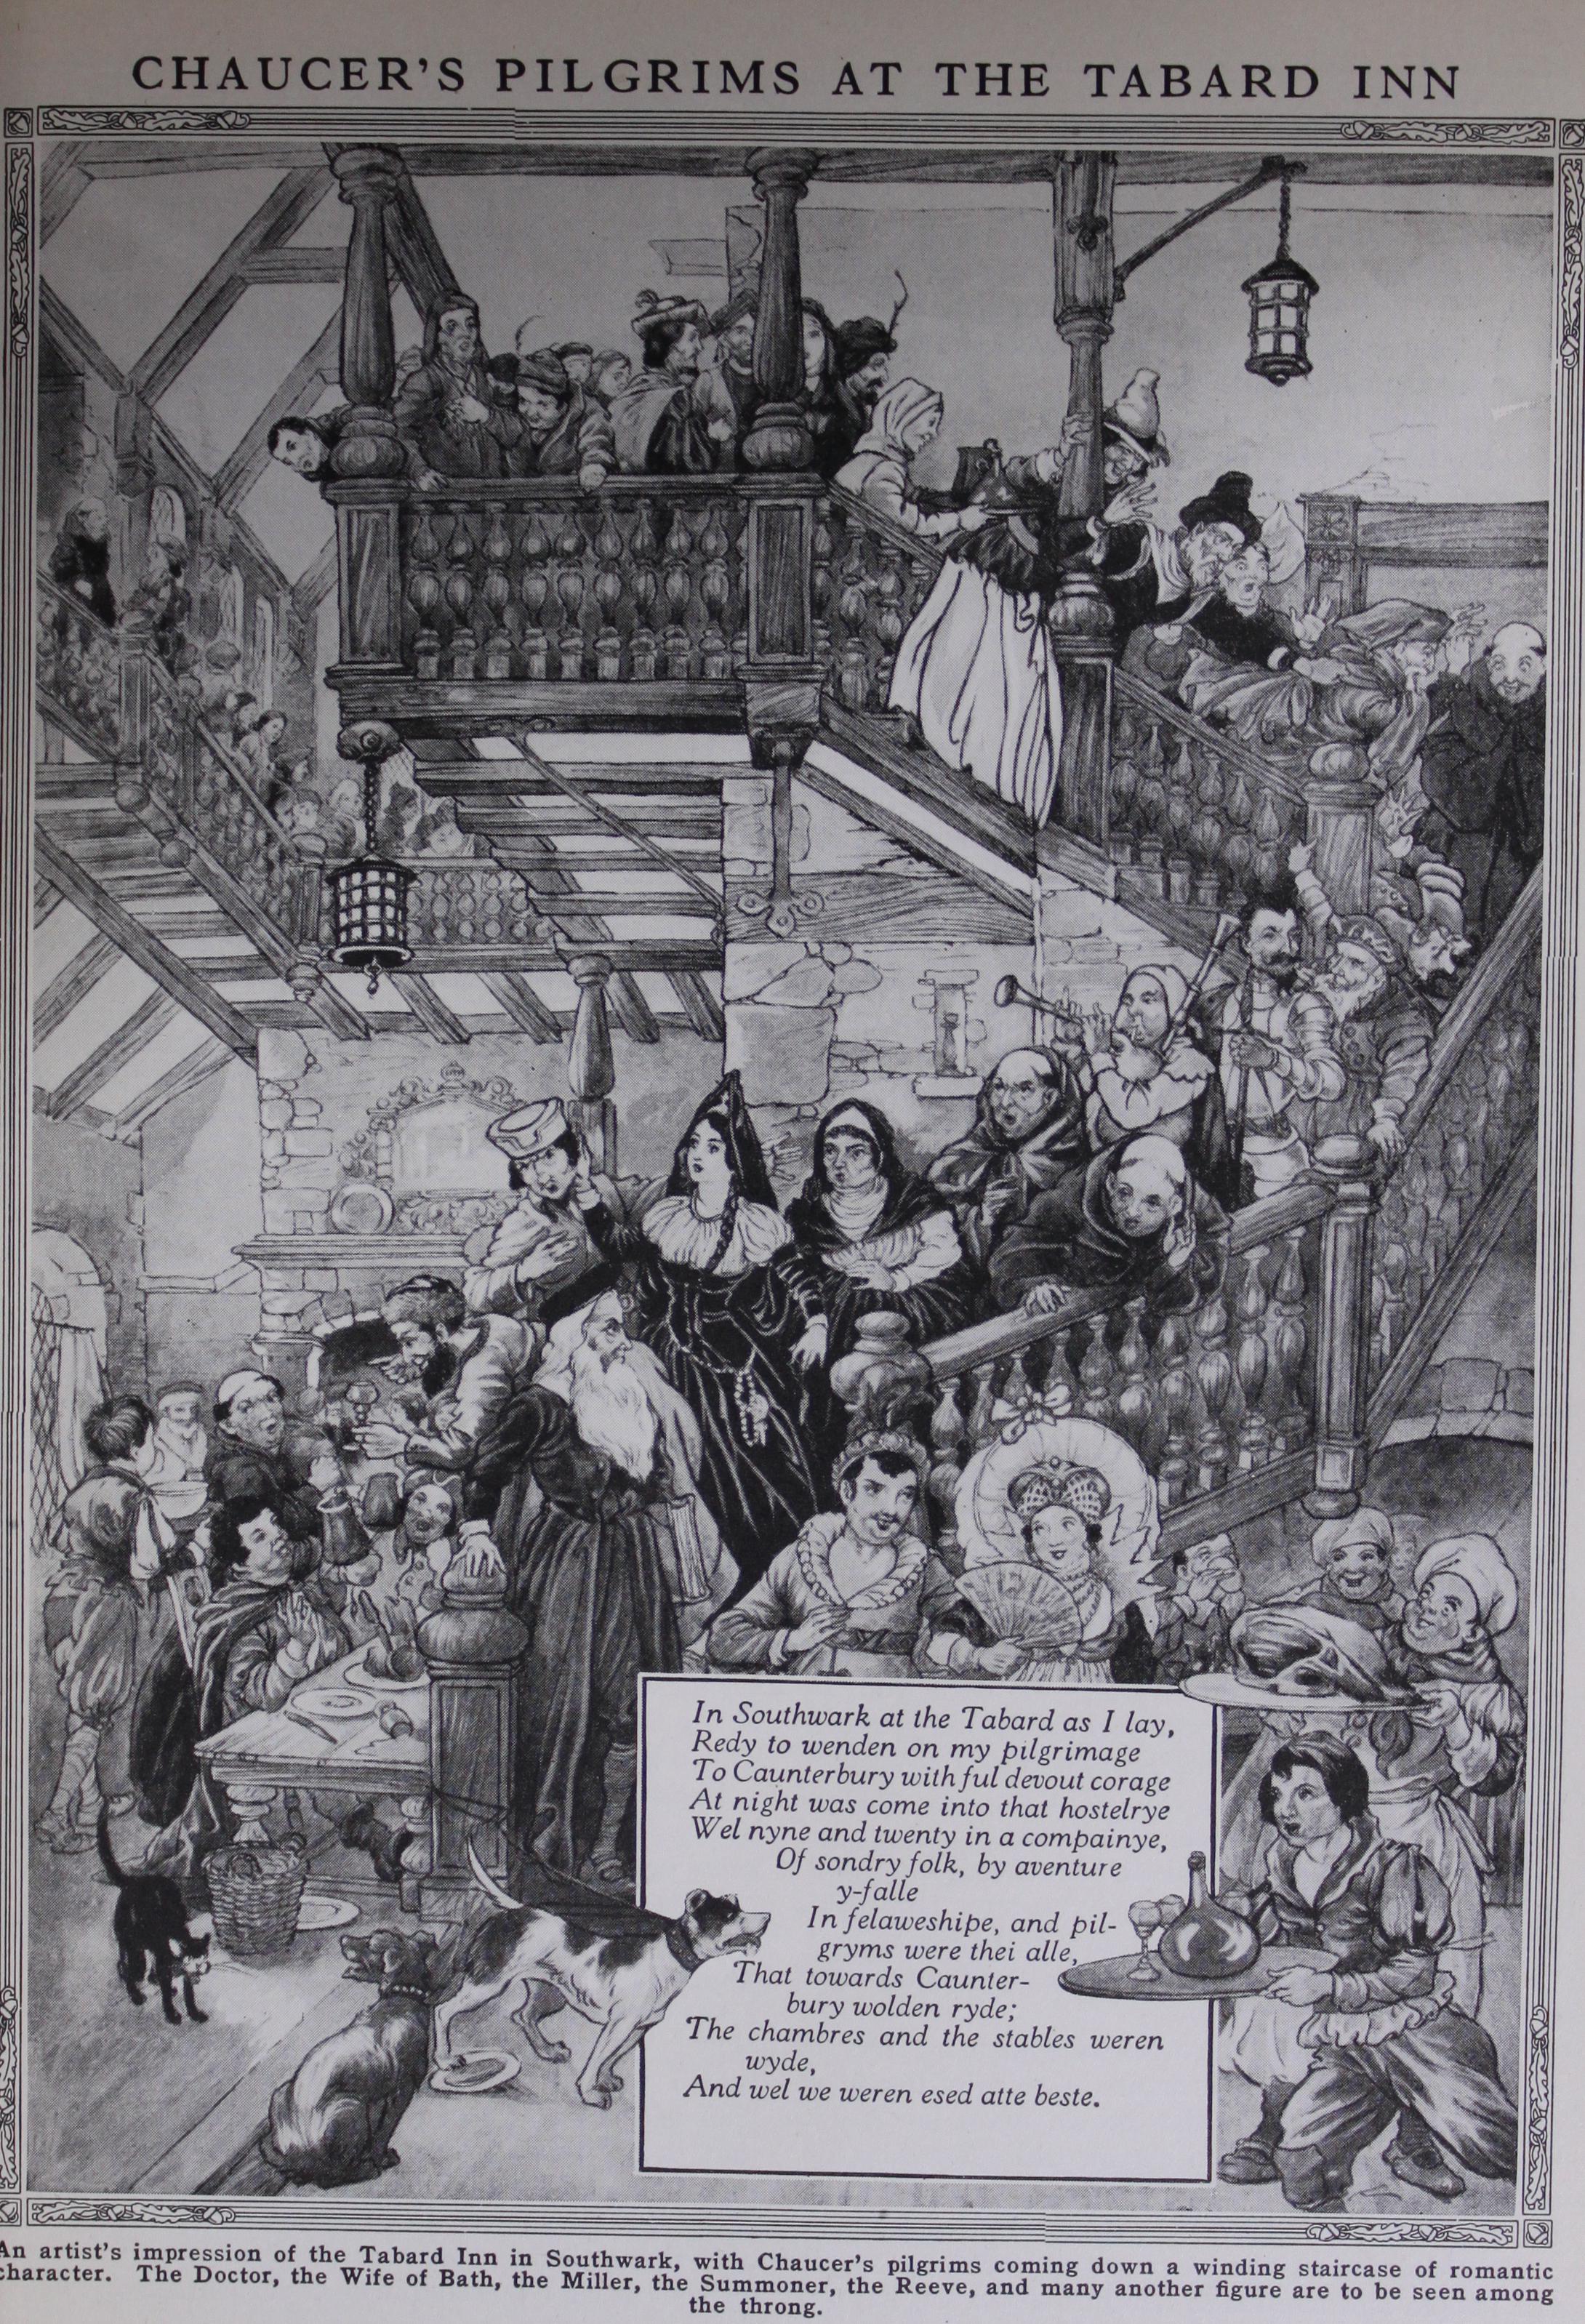 CHAUCER'S PILGRIMS AT THE TABARD INN
In Southwark at the Tabard as I lay,
Redy to wenden on my pilgrimage
To Caunterbury with ful devout corage
At night was come into that hostelrye
Wel nyne and twenty in a compainye,
Of sondry folk, by aventure
y-falle
In felaweshipe, and pil-
gryms were thei alle,
That towards Caunter-
bury wolden ryde;
The chambres and the stables weren
wyde,
And wel we weren esed atte beste.
An artist's impression of the Tabard Inn in Southwark, with Chaucer's pilgrims coming down a winding staircase of romantic
character. The Doctor, the Wife of Bath, the Miller, the Summoner, the Reeve, and many another figure are to be seen among
the throng.